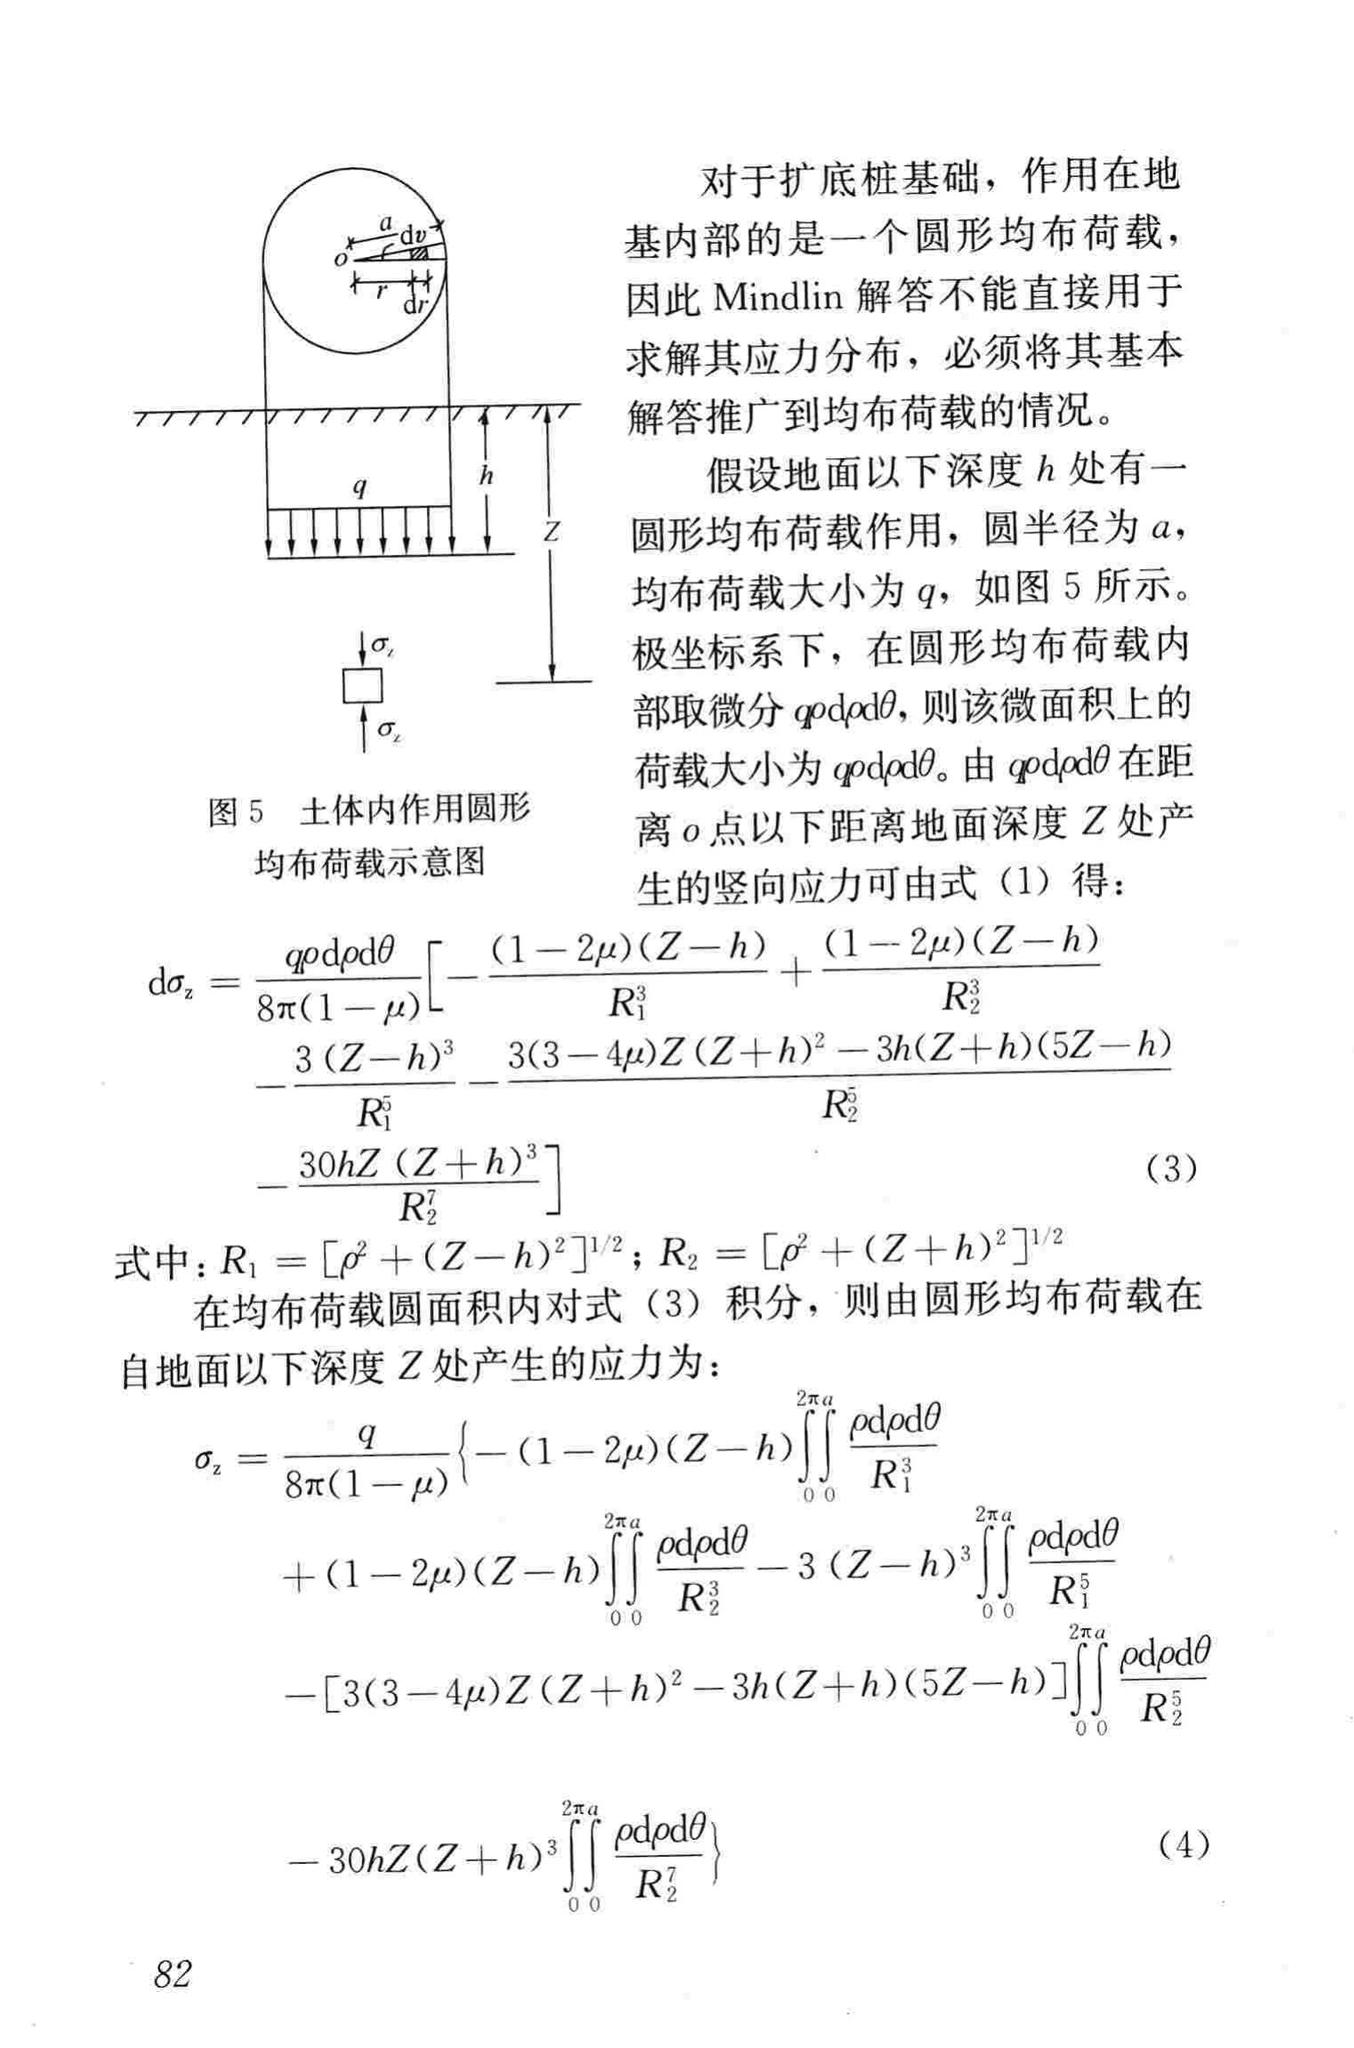 a
dv
o
r
dr
h
q
Z
σz
σz
图5 土体内作用圆形
均布荷载示意图
对于扩底桩基础，作用在地
基内部的是一个圆形均布荷载，
因此 Mindlin 解答不能直接用于
求解其应力分布，必须将其基本
解答推广到均布荷载的情况。
假设地面以下深度 h 处有一
圆形均布荷载作用，圆半径为 a，
均布荷载大小为 q，如图 5 所示。
极坐标系下，在圆形均布荷载内
部取微分 qρdρdθ, 则该微面积上的
荷载大小为 qρdρdθ。由 qρdρdθ 在距
离 o 点以下距离地面深度 Z 处产
生的竖向应力可由式（1）得：
dσ_z = \frac{qρdρdθ}{8π(1-μ)}[-\frac{(1-2μ)(Z-h)}{R_1^3}+\frac{(1-2μ)(Z-h)}{R_2^3}
-\frac{3(Z-h)^3}{R_1^5}-\frac{3(3-4μ)Z(Z+h)^2-3h(Z+h)(5Z-h)}{R_2^5}
-\frac{30hZ(Z+h)^3}{R_2^7}] (3)
式中：R_1 = [ρ^2+(Z-h)^2]^{1/2}；R_2 = [ρ^2+(Z+h)^2]^{1/2}
在均布荷载圆面积内对式（3）积分，则由圆形均布荷载在
自地面以下深度 Z 处产生的应力为：
σ_z = \frac{q}{8π(1-μ)}{-(1-2μ)(Z-h)\int_0^{2π}\int_0^a\frac{ρdρdθ}{R_1^3}
+(1-2μ)(Z-h)\int_0^{2π}\int_0^a\frac{ρdρdθ}{R_2^3}-3(Z-h)^3\int_0^{2π}\int_0^a\frac{ρdρdθ}{R_1^5}
-[3(3-4μ)Z(Z+h)^2-3h(Z+h)(5Z-h)]\int_0^{2π}\int_0^a\frac{ρdρdθ}{R_2^5}
-30hZ(Z+h)^3\int_0^{2π}\int_0^a\frac{ρdρdθ}{R_2^7}} (4)
82